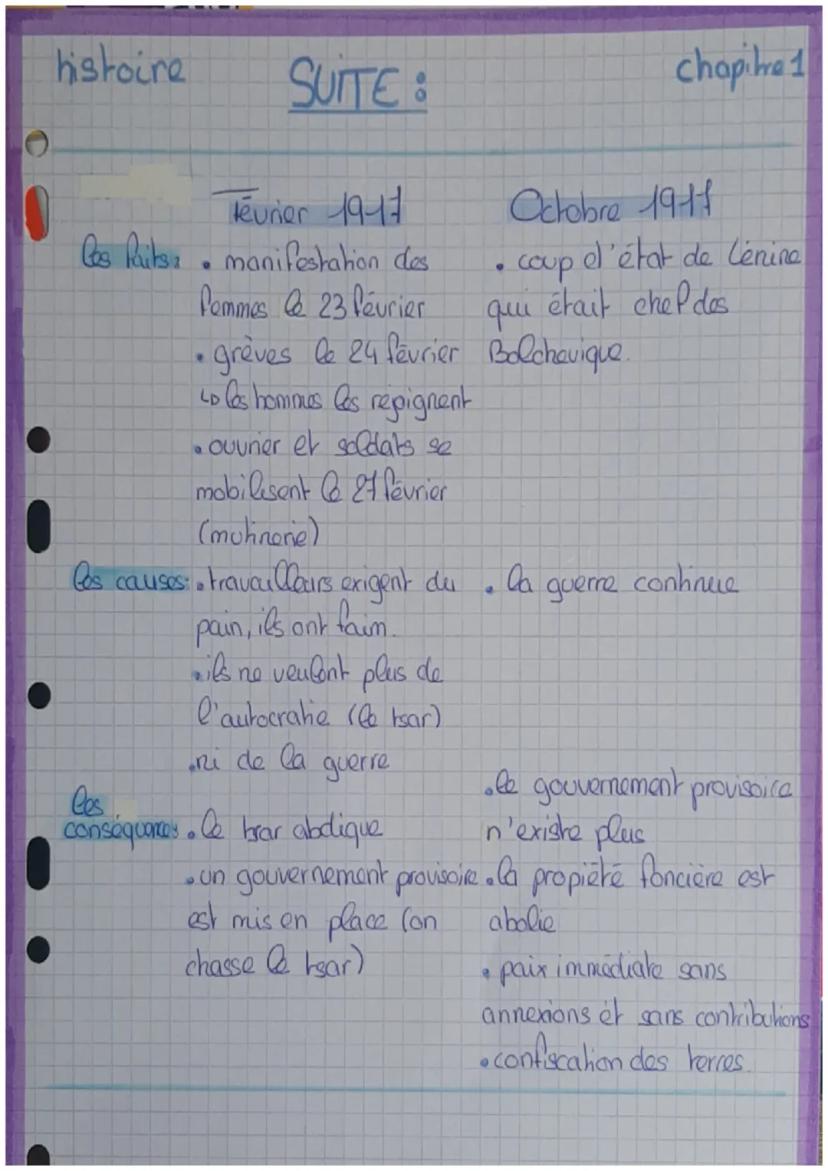 histoire
SUITE :
chapitre 1
Février 1917
Octobre 1917
les faits :
• manifestation des
femmes le 23 février
• grèves le 24 février
↳ les hommes les repignent
• ouvrier et soldats se
mobilisent le 27 février
(mutinerie)
• coup d'état de Lénine
qui était chef des
Bolchevique.
les causes :
• travailleurs exigent du
pain, ils ont faim.
• ils ne veulent plus de
l'autocratie (le tsar)
• ni de la guerre
• la guerre continue
les
conséquences
• le tsar abdique
• un gouvernement provisoire
est mis en place (on
chasse le tsar)
• le gouvernement provisoire
n'existe plus
• la propiété foncière est
abolie
• paix immédiate sans
annexions et sans contributions
• confiscation des terres.